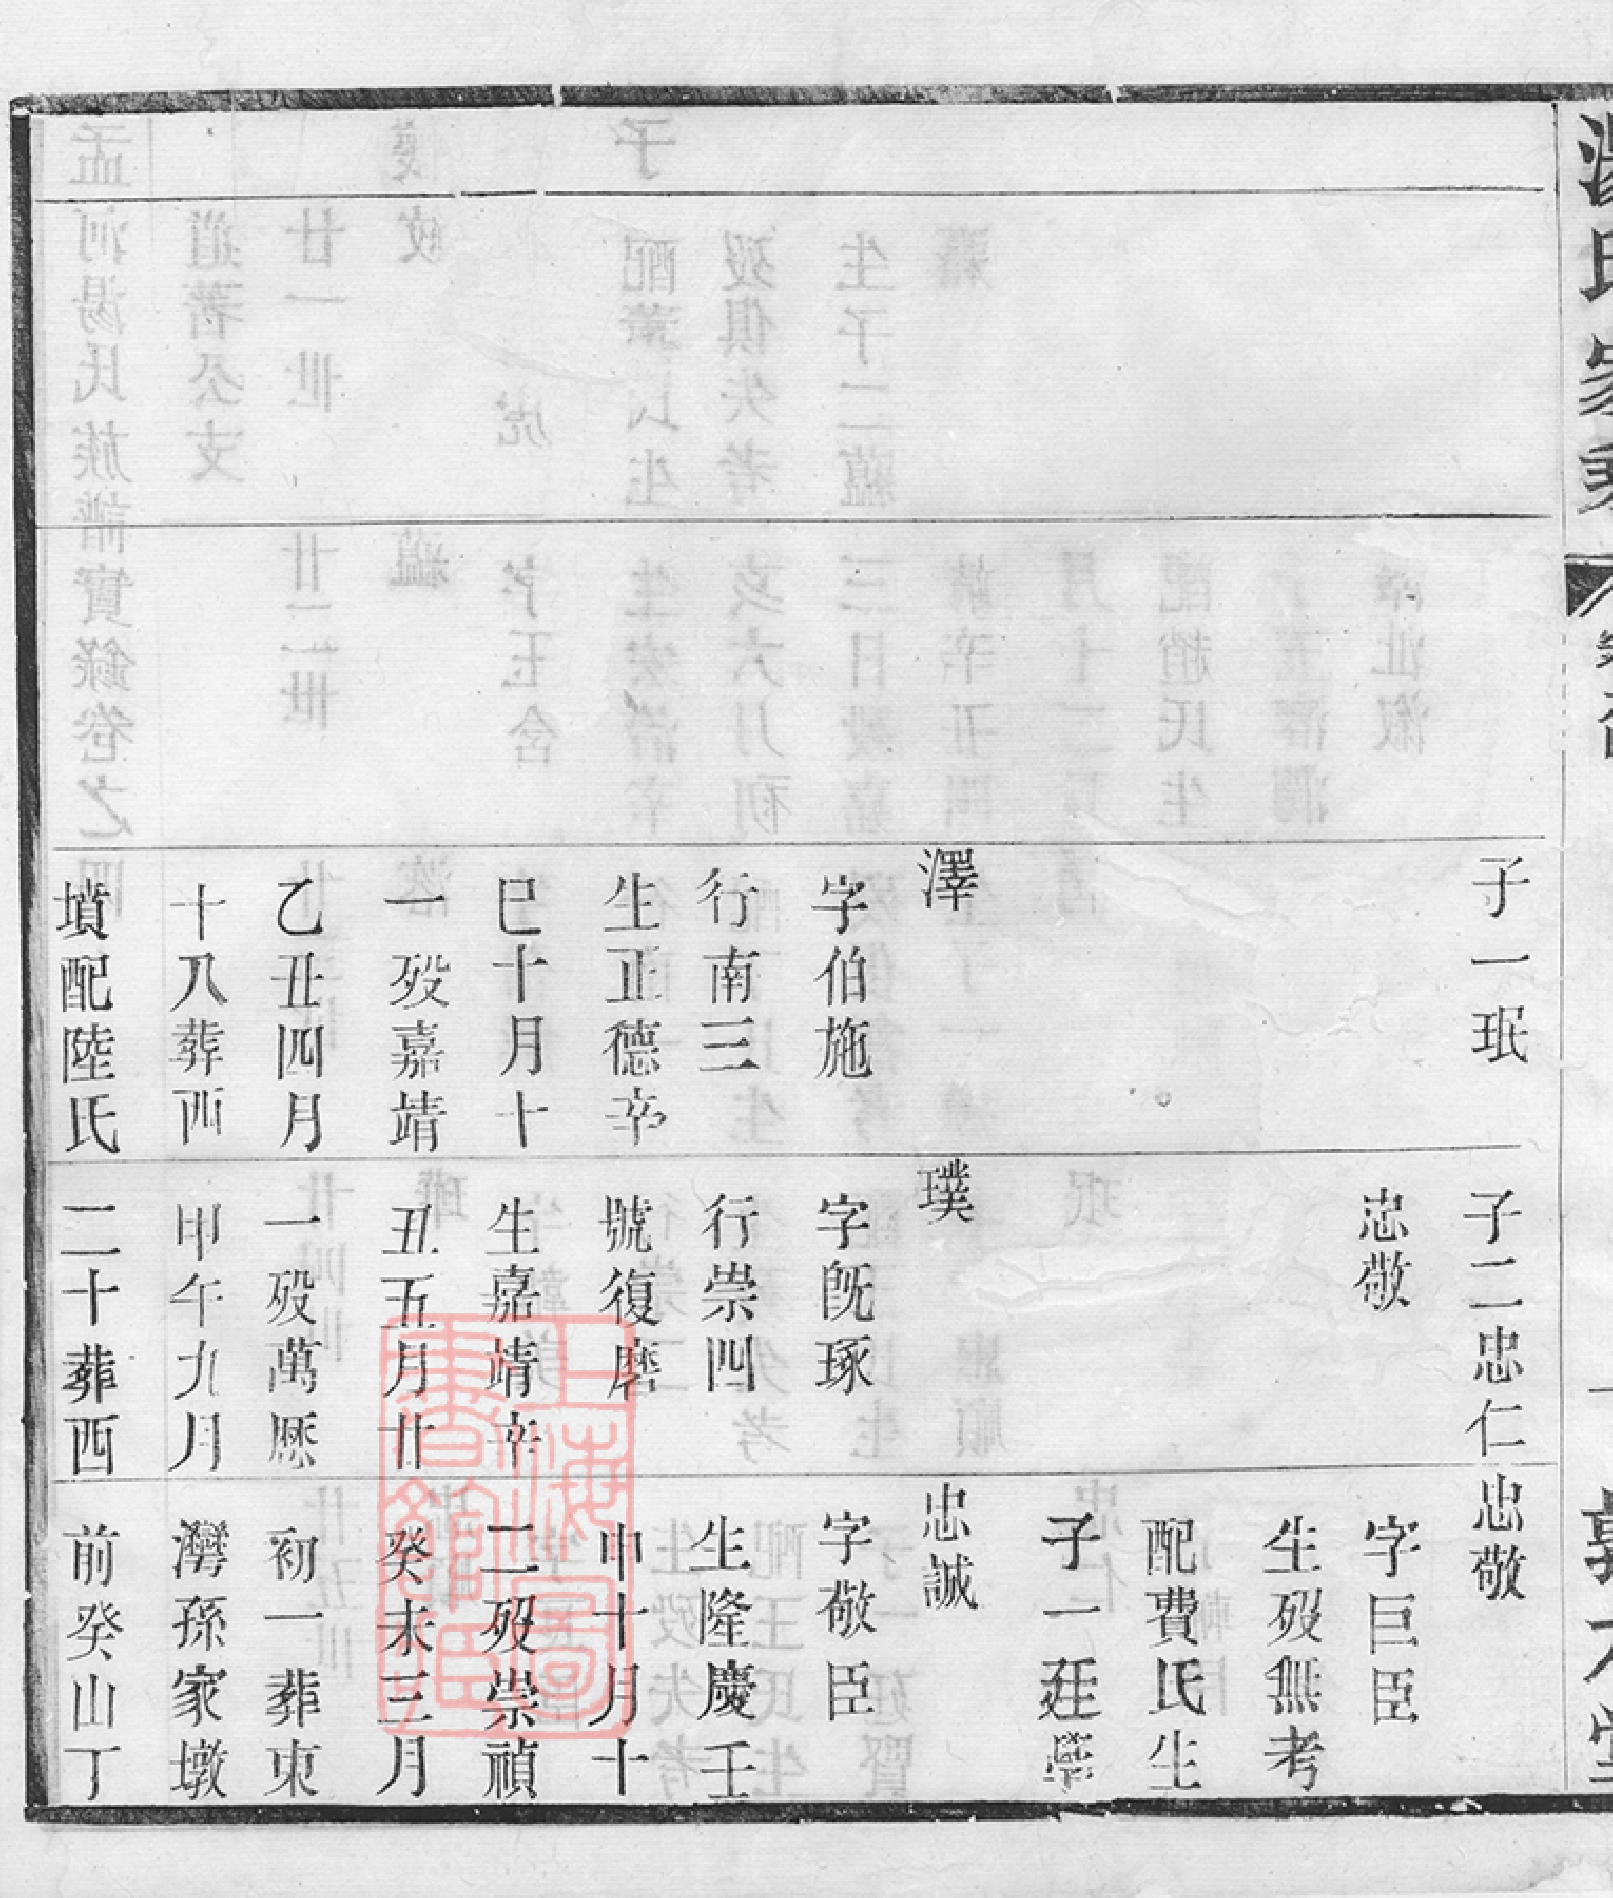 湯氏家乘
子一珉
澤
字伯施
行南三
生正德辛
巳十月十
一歿嘉靖
乙丑四月
十八葬西
墳配陸氏
子二忠仁
忠敬
璞
字既琢
行崇四
號復磨
生嘉靖辛
丑五月廿
一歿萬曆
甲午九月
二十葬西
忠敬
字巨臣
生歿無考
配費氏生
子一廷榮
忠誠
字敬臣
生隆慶壬
申十月十
二歿崇禎
癸未三月
初一葬東
灣孫家墩
前癸山丁
上海圖
書館藏